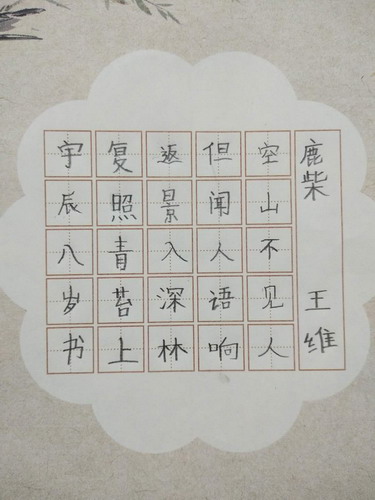 鹿柴 王维
空山不见人
但闻人语响
返景入深林
复照青苔上
宇辰八岁书